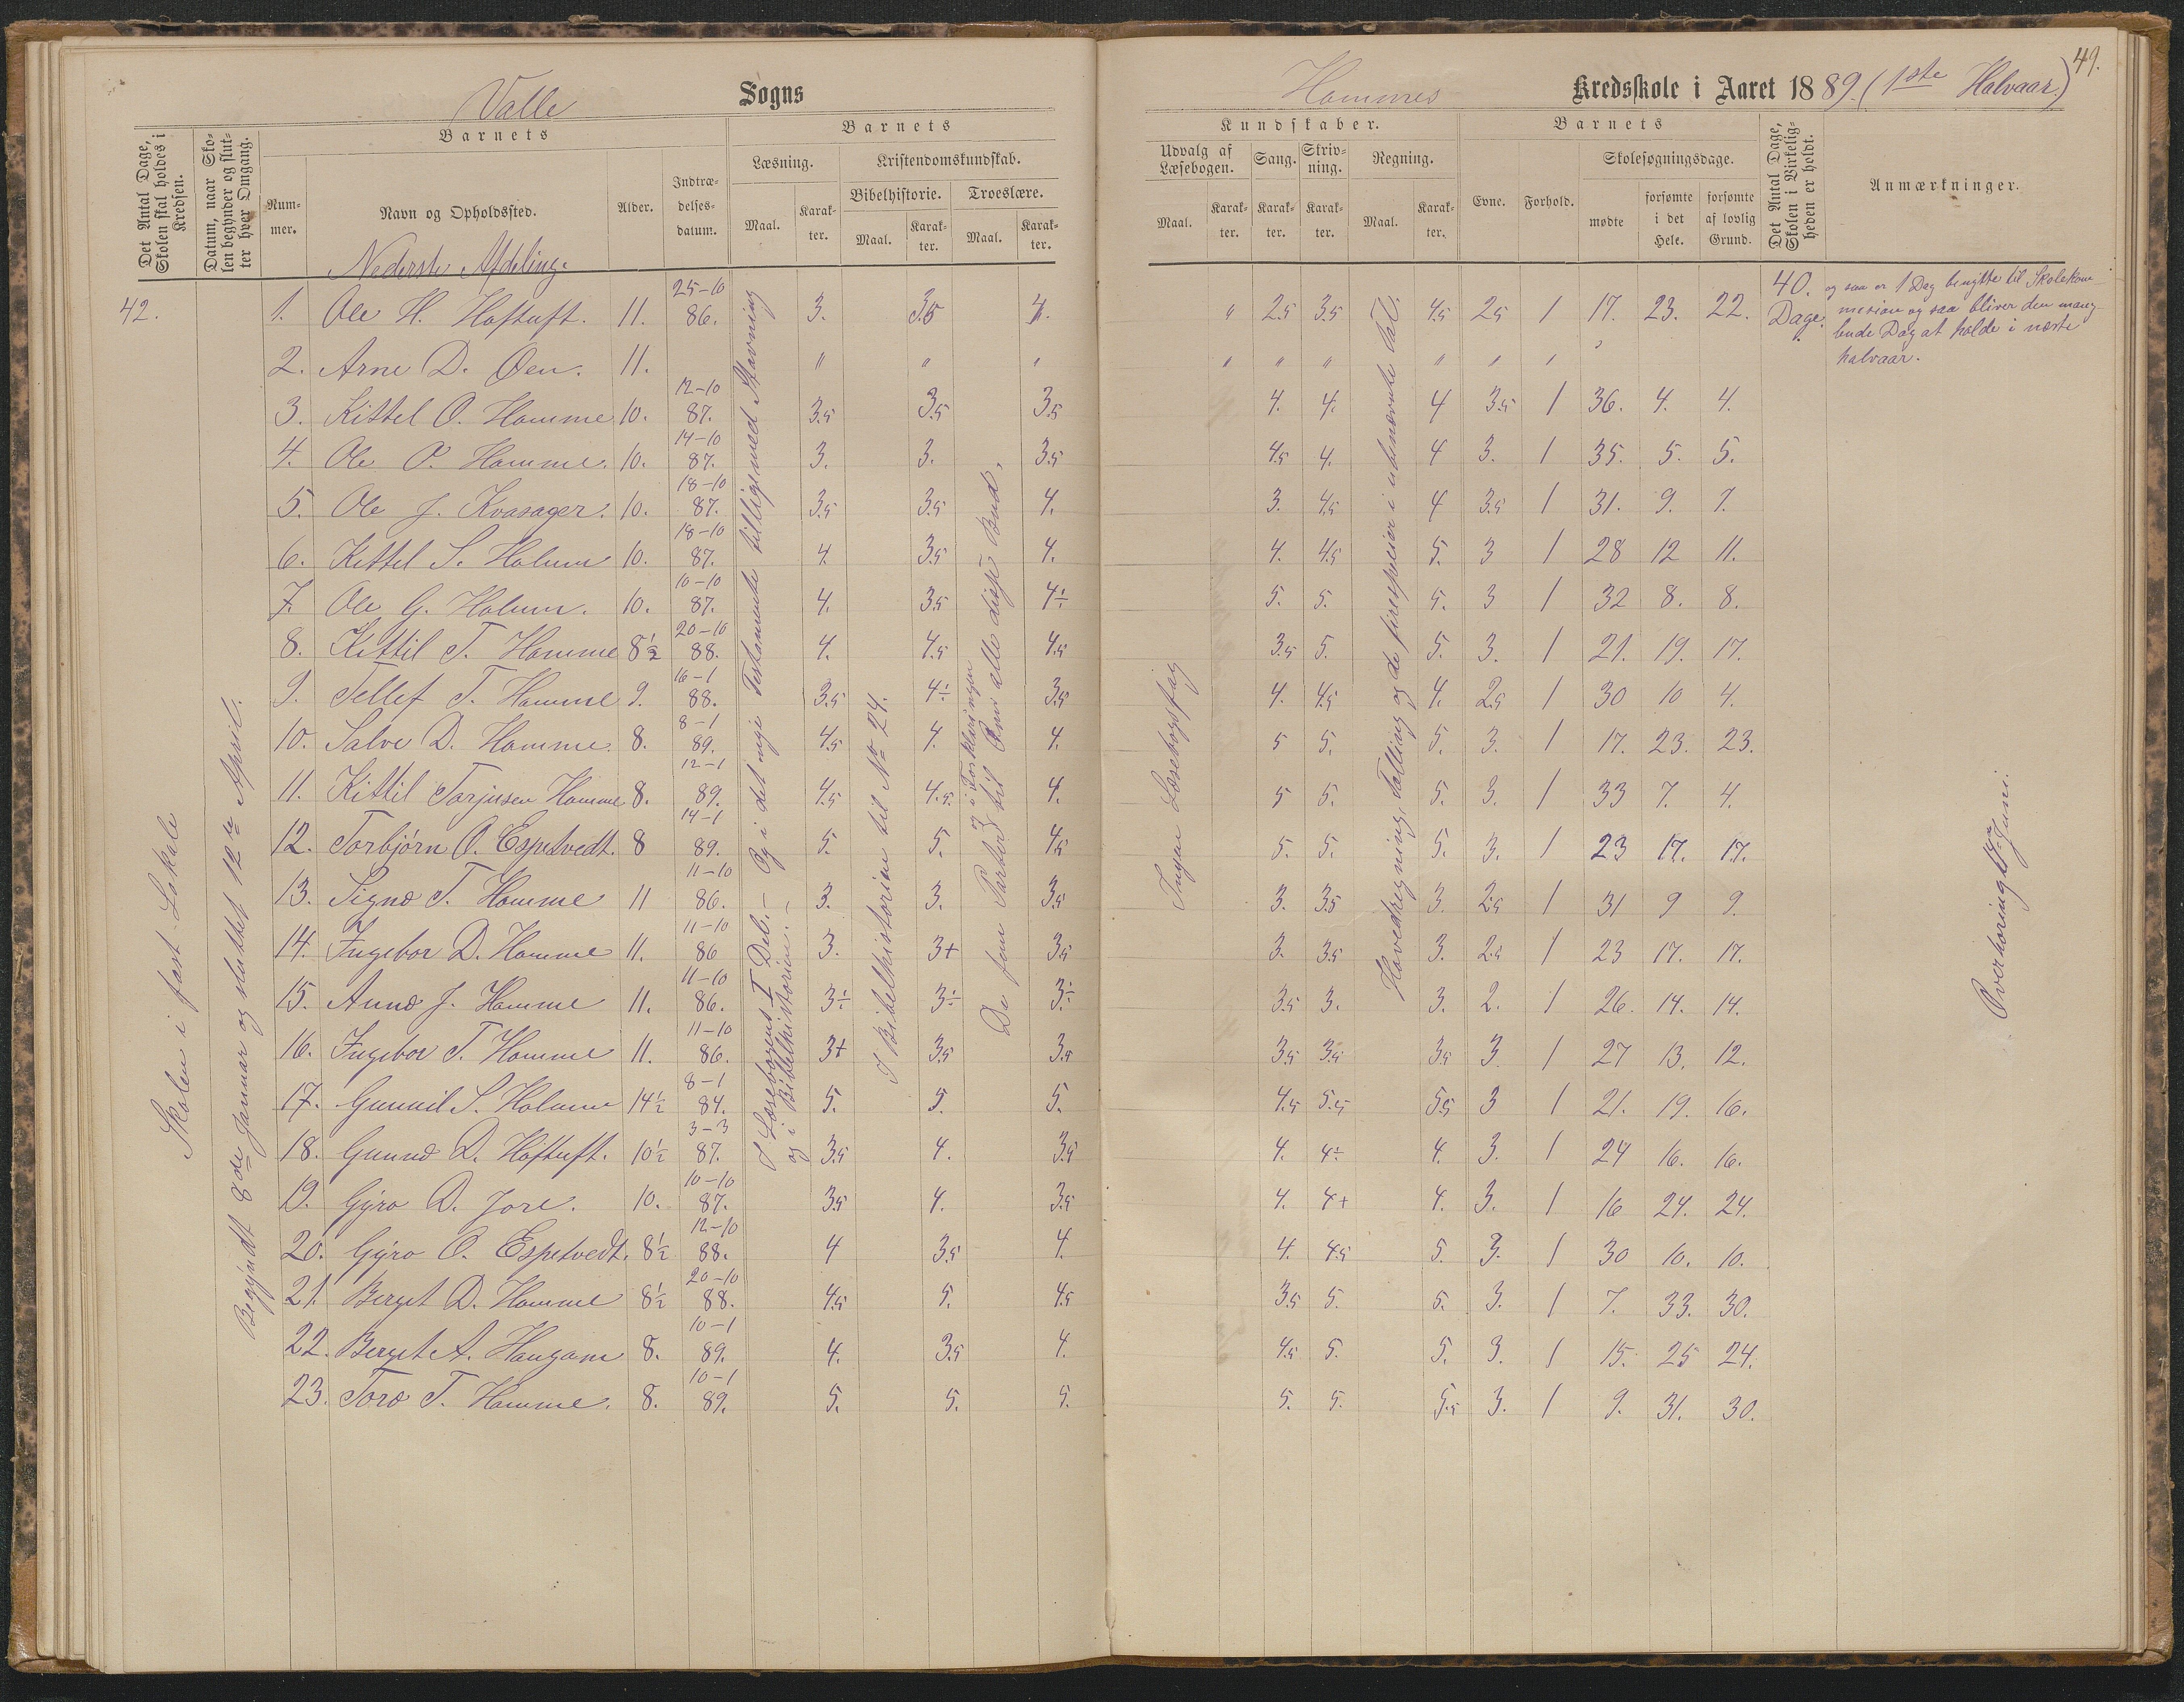 49.
Valle Sogns
Hommes Kredsskole i Aaret 1889. (1ste Halvaar)
Det Antal Dage, Skolen skal holdes i Kredsen.
Datum, naar Skolen begynder og slutter hver Omgang.
Barnets
Nummer.
Navn og Opholdssted.
Alder.
Indtrædelsesdatum.
Barnets
Læsning.
Maal.
Karakter.
Kristendomskundskab.
Bibelhistorie.
Maal.
Karakter.
Troeslære.
Maal.
Karakter.
Kundskaber.
Udvalg af Læsebogen.
Maal.
Karakter.
Sang.
Karakter.
Skrivning.
Karakter.
Regning.
Maal.
Karakter.
Barnets
Evne.
Forhold.
Skolesøgningsdage.
mødte
forsømte i det Hele.
forsømte af lovlig Grund.
Det Antal Dage, Skolen i Virkeligheden er holdt.
Anmærkninger.
Nederste Afdeling.
42.
1. Ole H. Hoftuft. 11. 25-10 86. 3. 3.5 4. " 2.5 3.5 4.5 2.5 1 17. 23. 22.
2. Arne D. Øen. 11. " " " " " " " " "
3. Kittel O. Homme 10. 12-10 87. 3.5 3.5 3.5 4. 4. 4 3.5 1 36. 4. 4.
4. Ole P. Homme. 10. 14-10 87. 3. 3. 3.5 4.5 4. 4 3. 1 35. 5. 5.
5. Ole J. Kvasager. 10. 18-10 87. 3.5 3.5 4. 3. 4.5 4 3.5 1 31. 9. 7.
6. Kittel S. Holum 10. 18-10 87. 4. 3.5 4. 4. 4.5 5. 3 1 28 12 11.
7. Ole G. Holum. 10. 10-10 87. 4. 3.5 4÷ 5. 5. 5. 3 1 32 8. 8.
8. Kittil T. Homme 8½ 20-10 88. 4. 4.5 4.5 3.5 5. 5. 3. 1 21. 19. 17.
9. Tellef T. Homme 9. 16-1 88. 3.5 4÷ 3.5 4. 4.5 4. 2.5 1 30 10 4.
10. Salve D. Homme. 8. 8-1 89. 4.5 4. 4. 5 5. 5. 3. 1 17. 23. 23.
11. Kittil Torjusen Homme 8. 12-1 89. 4.5 4.5. 4. 5 5. 5. 3. 1 33 7. 4.
12. Torbjørn O. Espetvedt. 8 14-1 89. 5. 5. 4.5 5. 5. 5. 3. 1 23 17. 17.
13. Signe T. Homme 11 11-10 86. 3. 3. 3.5 3. 3.5 3. 2.5 1 31 9 9.
14. Ingebor D. Homme 11. 11-10 86 3. 3+ 3.5 3. 3.5 3. 2.5 1 23 17. 17.
15. Anne J. Homme 11. 11-10 86. 3÷ 3÷ 3÷ 3.5 3. 3. 2. 1 26. 14. 14.
16. Ingebor T. Homme 11. 11-10 86. 3+ 3.5 3.5 3.5 3.5 3.5 3 1 27 13. 12.
17. Gunvil S. Holum 14½ 8-1 84. 5. 5. 5. 4.5 5.5 5.5 3 1 21. 19. 16.
18. Gunne D. Hoftuft. 10½ 3-3 87. 3.5 4. 3.5 4. 4÷ 4. 3. 1 24 16. 16.
19. Gyro D. Jore. 10. 10-10 87. 3.5 4. 3.5 4. 4+ 4. 3. 1 16 24. 24.
20. Gyro O. Espetvedt. 8½ 12-10 88. 4 3.5 4. 4. 4.5 5. 3. 1 30 10. 10.
21. Berget D. Homme 8½ 20-10 88. 4.5 5. 4.5 3.5 5. 5. 3. 1 7. 33. 30.
22. Berget A. Haugann 8. 10-1 89. 4. 3.5 4. 4.5 5. 5. 3. 1 15. 25 24.
23. Tore T. Homme. 8. 10-1 89. 5. 5. 5. 5. 5. 5.5 3. 1 9. 31. 30.
40. Dage.
og saa er 1 Dag benyttet til Skolekom
mision og saa bliver den mang-
lende Dag at holde i næste
halvaar.
Skolen i fast Lokale
Begyndt 8de Januar og sluttet 12te April.
I Læsebogens I Del. – Og i det nye Testamente tilligemed Stavning
og i Bibelhistorien. –
I Bibelhistorien til No 24.
De fem Parter i Forklaringen
til alle disse Bud.
Ingen Læsebogsfag
Hovedregning, Talling og de fire specier i ubenævnte Tal.
Overhøring Juni.